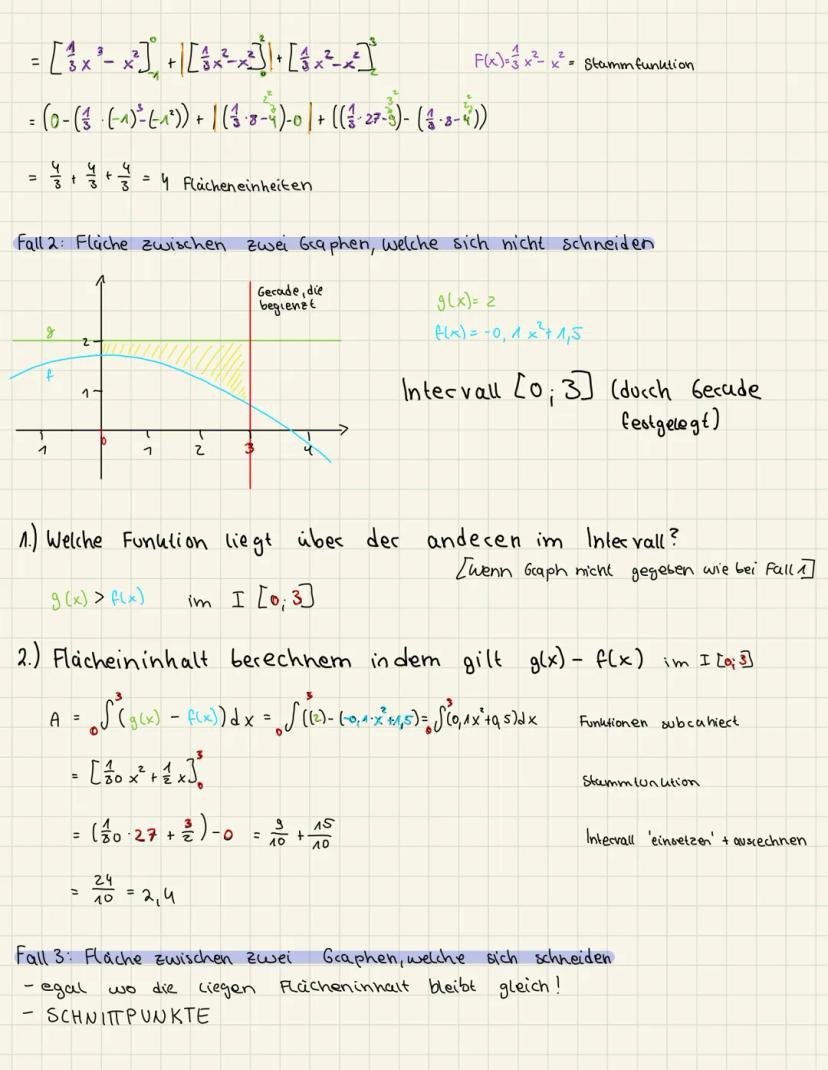 = [1/3 x³ - x²]⁰₋₁ + |[1/3 x² - x²]²₀| + [1/3 x² - x²]³₂ F(x) = 1/3 x² - x² = Stammfunktion
= (0 - (1/3 · (-1)³ - (-1²)) + |(1/3 · 8 - 4) - 0| + ((1/3 · 27 - 9) - (1/3 · 8 - 4))
= 4/3 + 4/3 + 4/3 = 4 Flächeneinheiten
Fall 2: Fläche zwischen zwei Graphen, welche sich nicht schneiden
Gerade, die
begrenzt
g
f
2
1
1 0 1 2 3 4
g(x) = 2
f(x) = -0,1x² + 1,5
Intervall [0; 3] (durch Gerade
festgelegt)
1.) Welche Funktion liegt über der anderen im Intervall?
[Wenn Graph nicht gegeben wie bei Fall 1]
g(x) > f(x) im I [0; 3]
2.) Flächeininhalt berechnem indem gilt g(x) - f(x) im I [0; 3]
A = ₀∫³ (g(x) - f(x)) dx = ₀∫³ ((2) - (-0,1·x² + 1,5) = ₀∫³ (0,1x² + 0,5) dx Funktionen subrahiert
= [1/30 x² + 1/2 x]³₀ Stammfunktion
= (1/30 · 27 + 3/2) - 0 = 9/10 + 15/10 Intervall 'einsetzen' + ausrechnen
= 24/10 = 2,4
Fall 3: Fläche zwischen zwei Graphen, welche sich schneiden
- egal wo die liegen Flächeninhalt bleibt gleich!
- SCHNITTPUNKTE